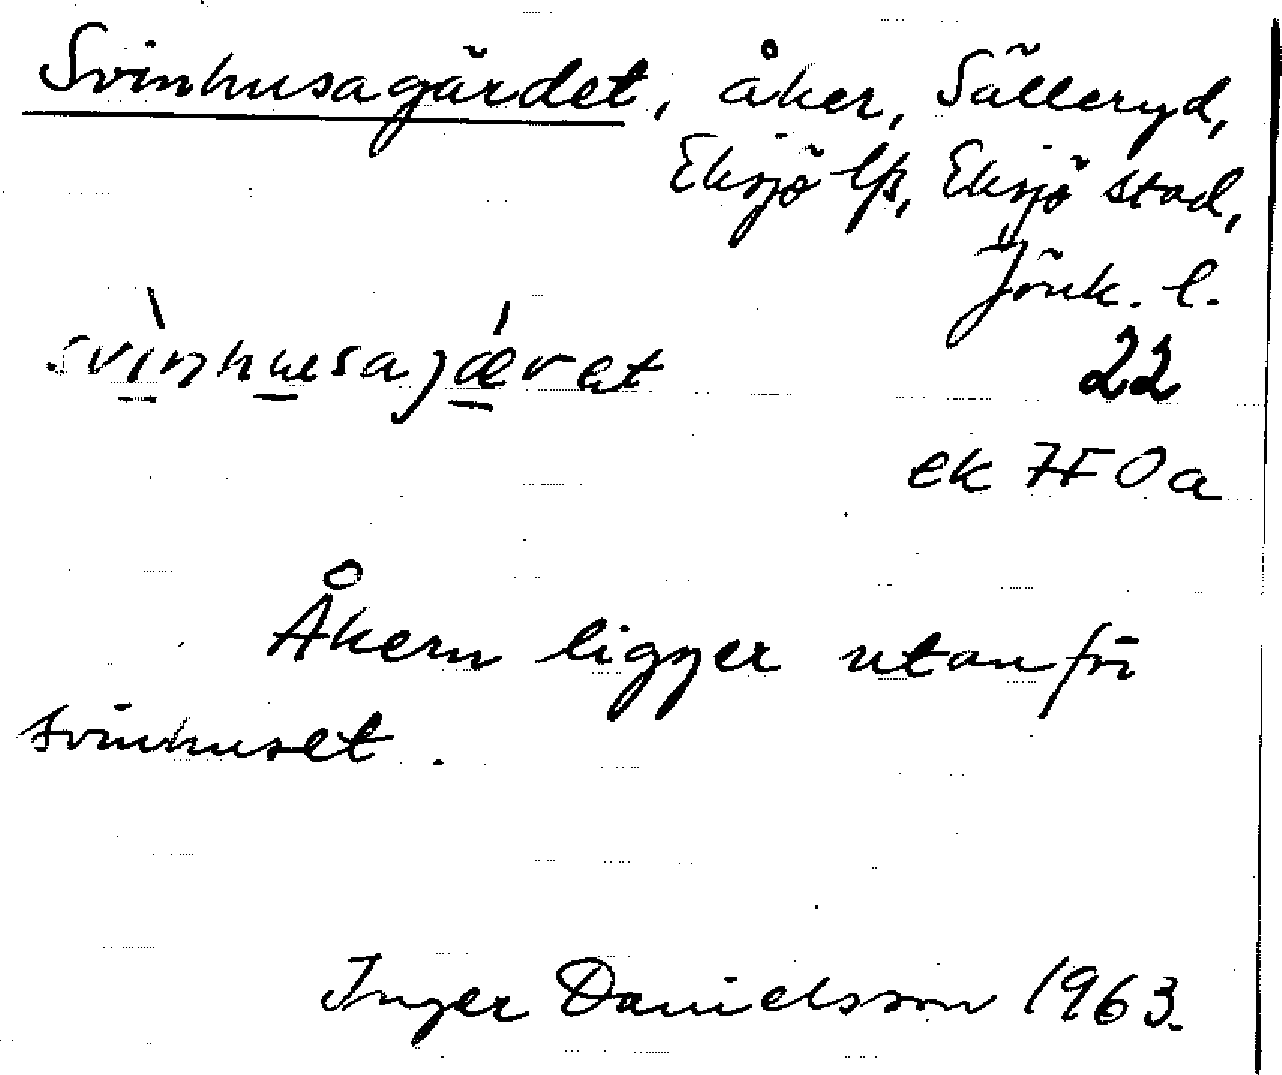 Svinhusagärdet, åker, Sälleryd,
Eksjö lfs, Eksjö stad,
Jönk. l.
svìnhusajǽret
22
ek 7F0a
Åkern ligger utanför
svinhuset.
Inger Danielsson 1963.